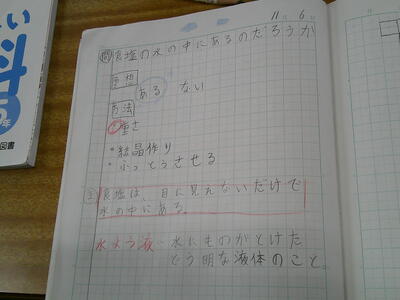 11 6
問 食塩の水の中にあるのだろうか
予想
ある ない
方法
重さ
・結晶作り
・ふっとうさせる
食塩は、目に見えないだけで
水の中にある。
水よう液…水にものがとけた
とう明な液体のこと。
い
科
5年
図書